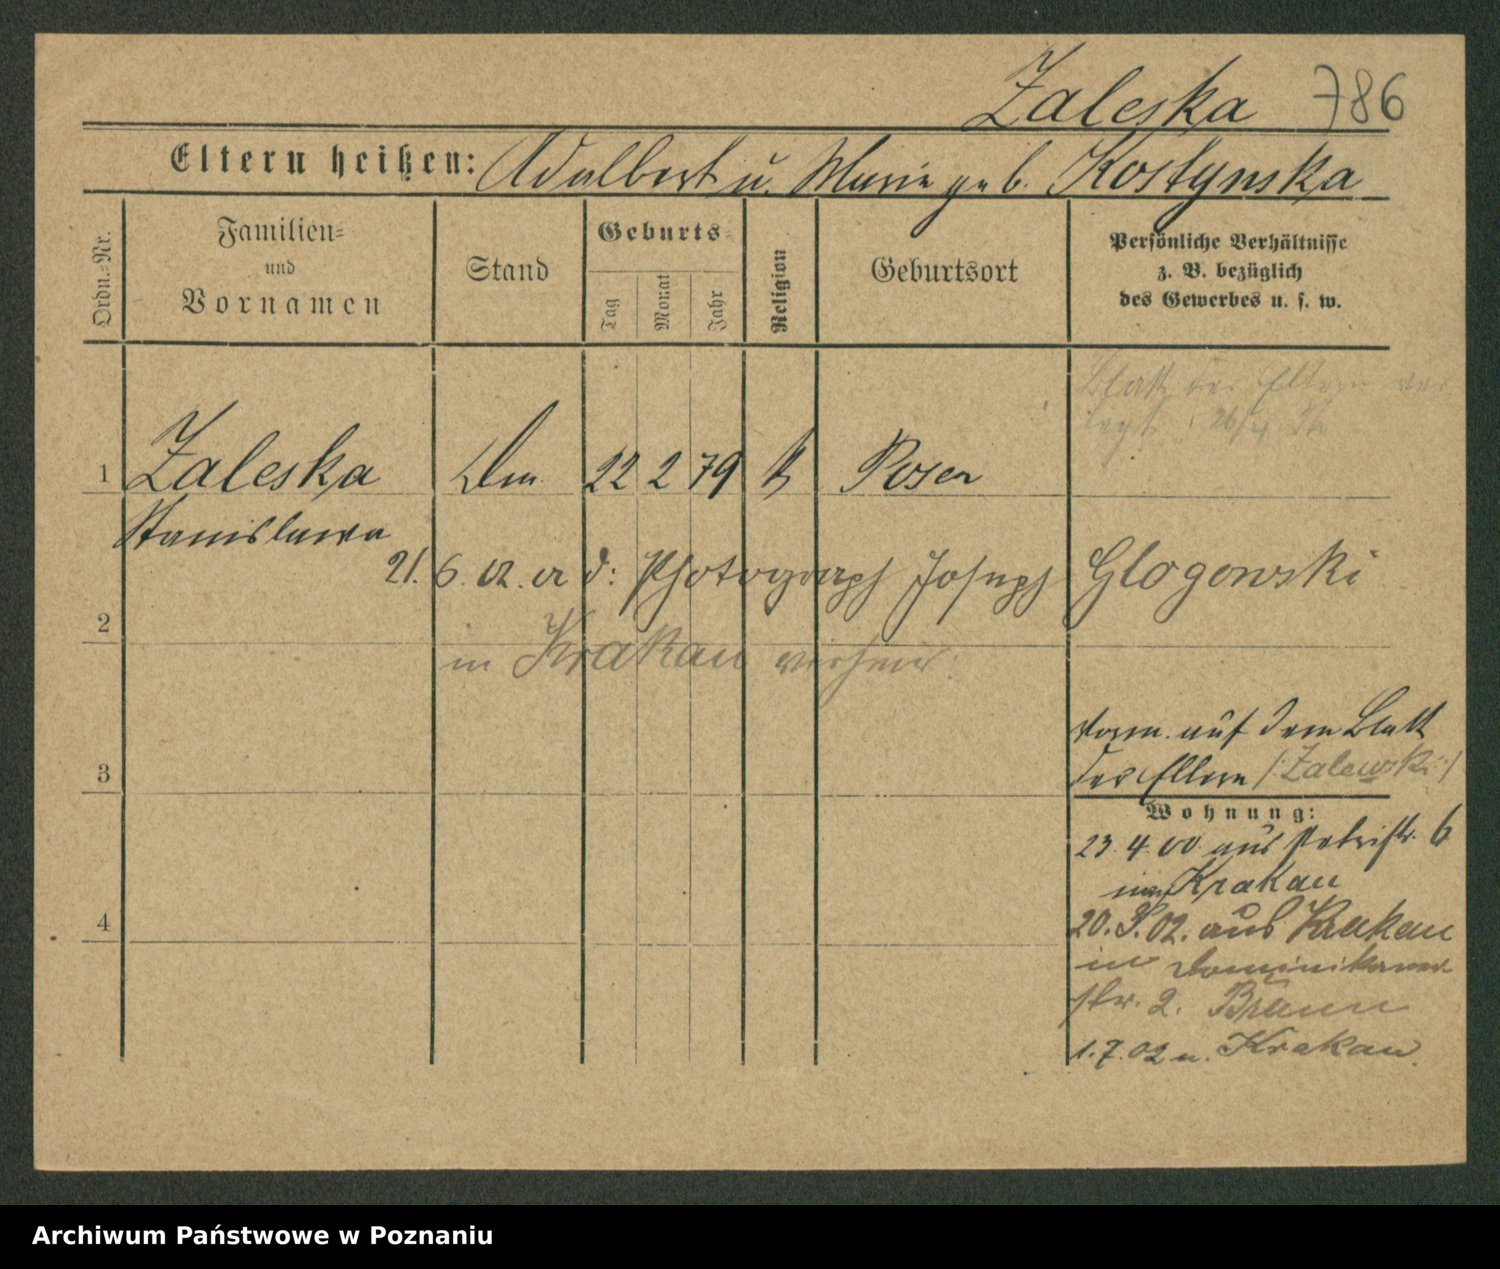 Zaleska 786
Eltern heißen: Adalbert u. Marie geb. Kostynska
Ordn.-Nr.
Familien-
und
Vornamen
Stand
Geburts-
Tag
Monat
Jahr
Religion
Geburtsort
Persönliche Verhältnisse
z. B. bezüglich
des Gewerbes u. s. w.
Blatt der Eltern ver
legt 26/4
1 Zaleska 22 2 79 k Posen
Stanislawa
21. 6. 02. d: Photograph Joseph Glogowski
2
in Krakau verheir.
3
Vorm. auf dem Blatt
der Eltern /: Zalewski :/
Wohnung:
23. 4. 00. aus Petristr. 6
n. Krakau
4
20. 3. 02. aus Krakau
in Dominikaner
str. 2. Braun
1. 7. 02 n. Krakau.
Archiwum Państwowe w Poznaniu